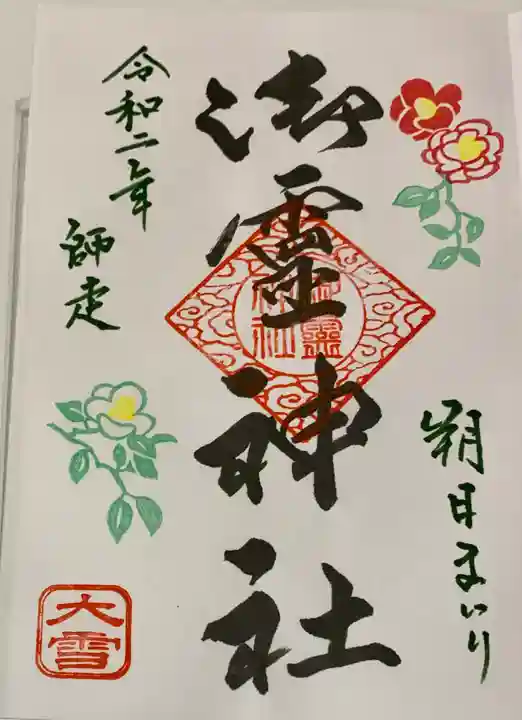 朔日まいり
御霊神社
御霊
神社
令和二年
師走
大雪